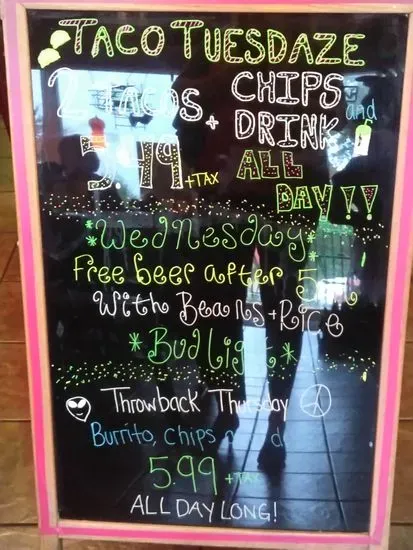 TACO TUESDAZE
2 TACOS + CHIPS and
DRINK
5.49 +TAX ALL
DAY!!
*Wednesday*
Free beer after 5
With Beans + Rice
*Bud light*
Throwback Thursday
Burrito, Chips
5.99 +TAX
ALL DAY LONG!